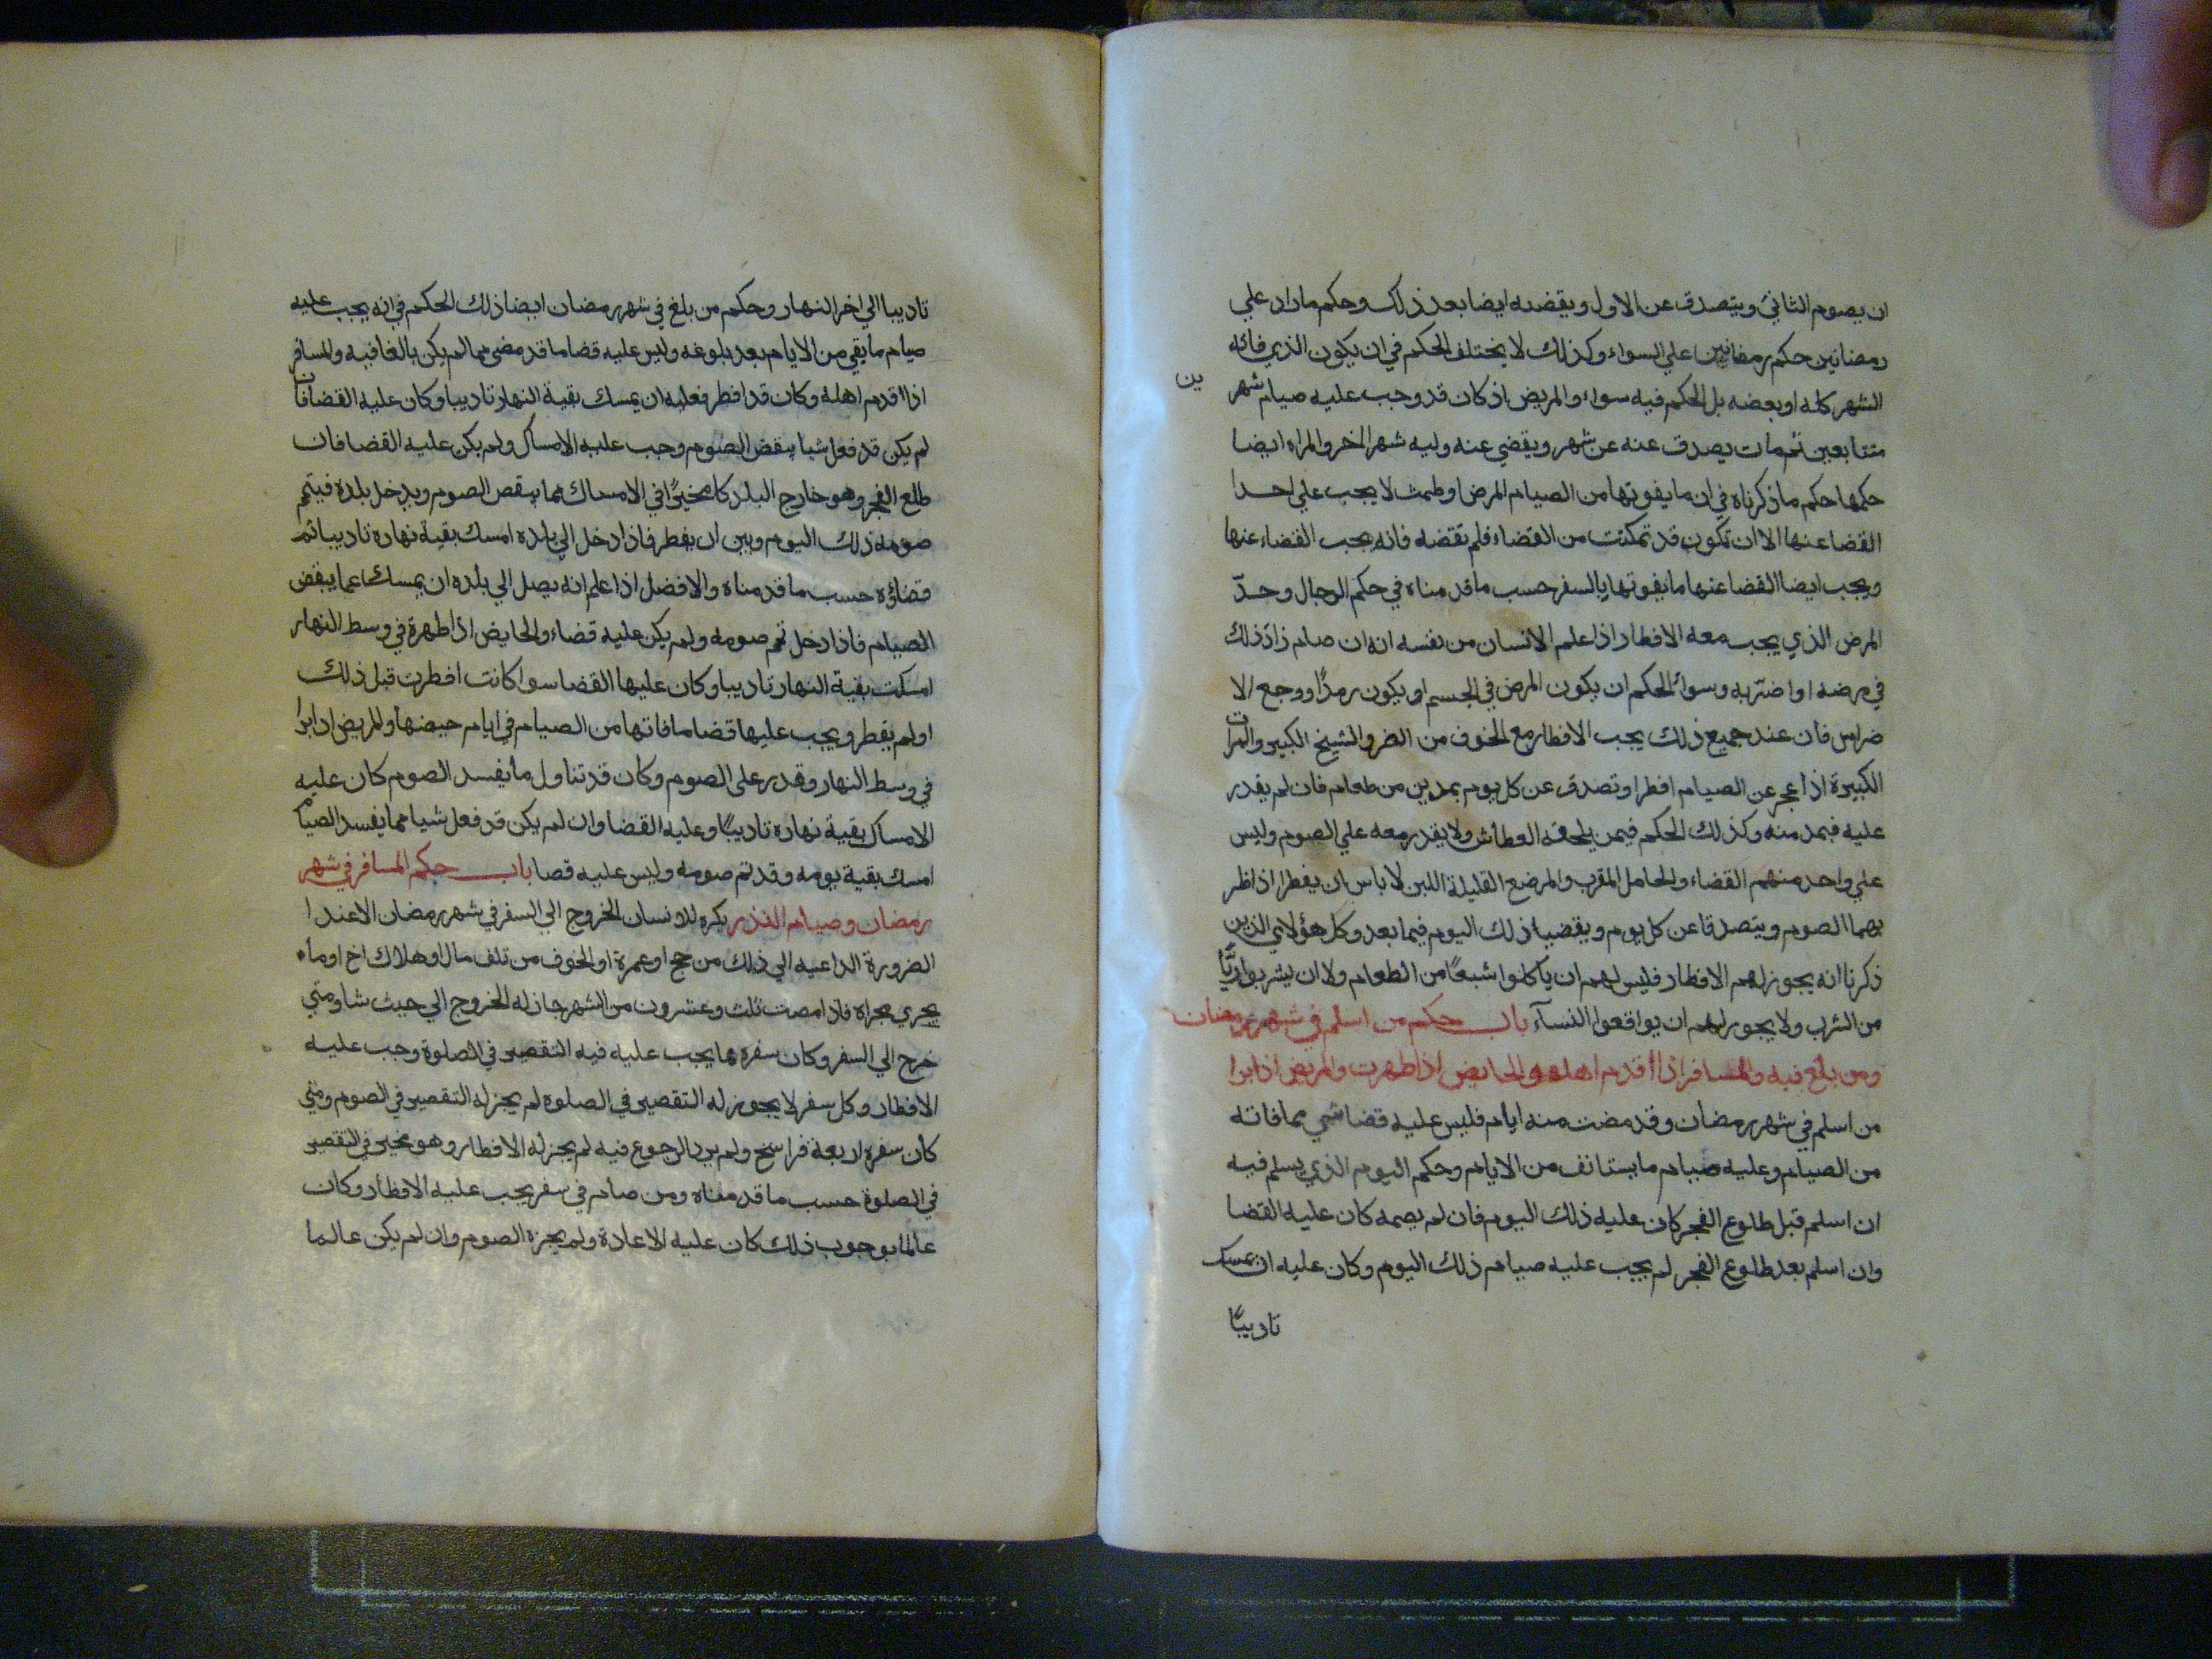 ان يصوم الثاني ويتصدق عن الاول ويقضيه ايضا بعد ذلك وحكم مازاد علي
رمضانين حكم رمضانين علي السواء وكذلك لا يختلف الحكم في ان يكون الذي فاته
الشهر كله او بعضه بل الحكم فيه سواء والمريض اذ كان قد وجب عليه صيام شهر
ين
متتابعين ثم مات يصدق عنه عن شهر ويقضي عنه وليه شهر الاخر والمراه ايضا
حكمها حكم ماذكرناه في ان مايفوتها من الصيام المرض او طمث لا يجب علي احدا
القضا عنها الا ان تكون قد تمكنت من القضاء فلم تقضه فانه يجب القضاء عنها
ويجب ايضا القضا عنها مايفوتها بالسفر حسب ماقدمناه في حكم الرجال وحدّ
المرض الذي يجب معه الافطار اذا علم الانسان من نفسه انه ان صام زاد ذلك
في مرضه او اضرّ به وسواء الحكم ان يكون المرض في الجسم او يكون رمدًا ووجع الا
ضراس فان عند جميع ذلك يجب الافطار مع الخوف من الضر والشيخ الكبير والمرات
الكبيرة اذا عجر عن الصيام افطرا وتصدق عن كل يوم بمدين من طعام فان لم يقدر
عليه فبمد منه وكذلك الحكم فيمن يلحقه العطاش ولا يقدر معه علي الصوم وليس
علي واحد منهم القضاء والحامل المقرب والمرضع القليلة اللبن لا باس ان يفطرا اذا ظر
بهما الصوم ويتصدقا عن كل يوم ويقضيا ذلك اليوم فيما بعد وكل هؤلاي الذين
ذكرنا انه يجوز لهم الافطار فليس لهم ان ياكلوا شبعًا من الطعام ولا ان يشربوا ريًّا
من الشرب ولا يجوز لهم ان يواقعوا النسآء باب حكم من اسلم في شهر رمضان
ومن بلغ فيه والمسافر اذا اقدم اهله والحايض اذا طهرت والمريض اذا برا
من اسلم في شهر رمضان وقد مضت منه ايام فليس عليه قضا شي مما فاته
من الصيام وعليه صيام مايستانف من الايام وحكم اليوم الذي يسلم فيه
ان اسلم قبل طلوع الفجر كان عليه ذلك اليوم فان لم يصمه كان عليه القضا
وان اسلم بعد طلوع الفجر لم يجب عليه صيام ذلك اليوم وكان عليه ان يمسك
تاديبًا
تاديبا الي اخر النهار وحكم من بلغ في شهر رمضان ايضا ذلك الحكم في انه يجب عليه
صيام مابقي من الايام بعد بلوغه وليس عليه قضا ماقد مضي مما لم يكن بالغا فيه والمسافر
اذا اقدم اهله وكان قد افطر فعليه ان يمسك بقية النهار تاديبا وكان عليه القضا فان
لم يكن قد فعل شيا ينقض الصوم وجب عليه الامساك ولم يكن عليه القضا فان
طلع الفجر وهو خارج البلد كا مخيرًا في الامساك مما ينقص الصوم ويدخل بلده فيتم
صومه ذلك اليوم وبين ان يفطر فاذا دخل الي بلده امسك بقية نهاره تاديبا ثم
قضاؤه حسب ماقدمناه والافضل اذا علم انه يصل الي بلده ان يمسك عما ينقض
الصيام فاذا دخل تم صومه ولم يكن عليه قضاء والحايض اذا طهرة في وسط النهار
امسكت بقية النهار تاديبا وكان عليها القضا سوا كانت افطرت قبل ذلك
اولم يفطر ويجب عليها قضا مافاتها من الصيام في ايام حيضها والمريض اذا برا
في وسط النهار وقدر علي الصوم وكان قد تناول مايفسد الصوم كان عليه
الامساك بقية نهاره تاديبًا وعليه القضا وان لم يكن قد فعل شيا مما يفسد الصيام
امسك بقية يومه وقد تم صومه وليس عليه قصا باب حكم المسافر في شهر
رمضان وصيام النذر يكره للانسان الخروج الي السفر في شهر رمضان الا عند ا
الضرورة الداعيه الي ذلك من حج او عمرة او الخوف من تلف مال او هلاك اخ او ماء
يجري مجراه فاذا مصت ثلث وعشرون من الشهر جاز له الخروج الي حيث شا ومتي
خرج الي السفر وكان سفره مما يجب عليه فيه التقصير في الصلوة وجب عليه
الافطار وكل سفر لا يجوز له التقصير في الصلوه لم يجز له التقصير في الصوم ومتي
كان سفره اربعة فراسخ ولم يرد الرجوع فيه لم يجز له الافطار وهو مخير في التقصير
في الصلوة حسب ماقدمناه ومن صام في سفر يجب عليه الافطار وكان
عالما بوجوب ذلك كان عليه الاعادة ولم يجزه الصوم وان لم يكن عالما